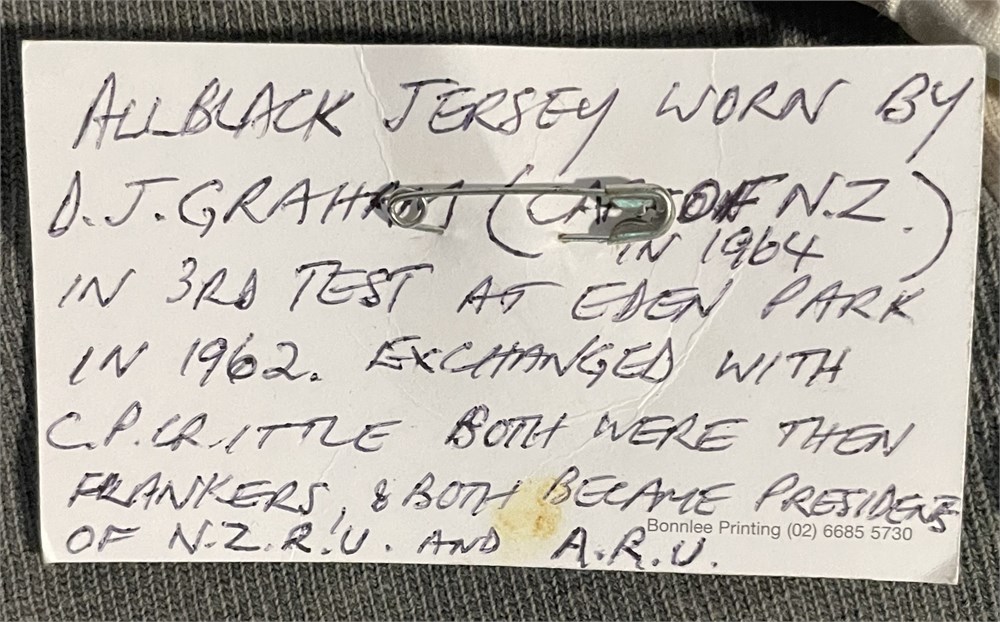 ALLBLACK JERSEY WORN BY
D.J. GRAHAM (CAPT OF N.Z.)
IN 1964
IN 3RD TEST AT EDEN PARK
IN 1962. EXCHANGED WITH
C.P. CRITTLE BOTH WERE THEN
FRANKERS, & BOTH BECAME PRESIDENTS
OF N.Z.R.U. AND A.R.U.
Bonnlee Printing (02) 6685 5730